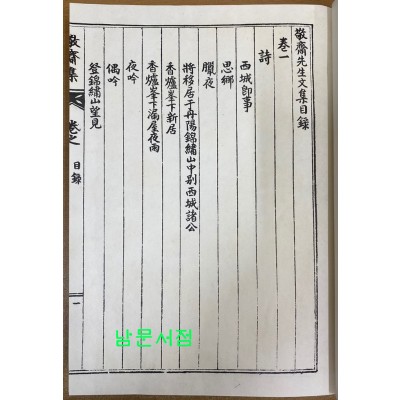 敬齋先生文集目錄
卷一
詩
西城卽事
思鄕
臘夜
將移居于丹陽錦繡山中別西城諸公
香爐峯下新居
香爐峯下漏屋夜雨
夜吟
偶吟
登錦繡山望見
敬齋集 卷之 目錄 一
남문서점